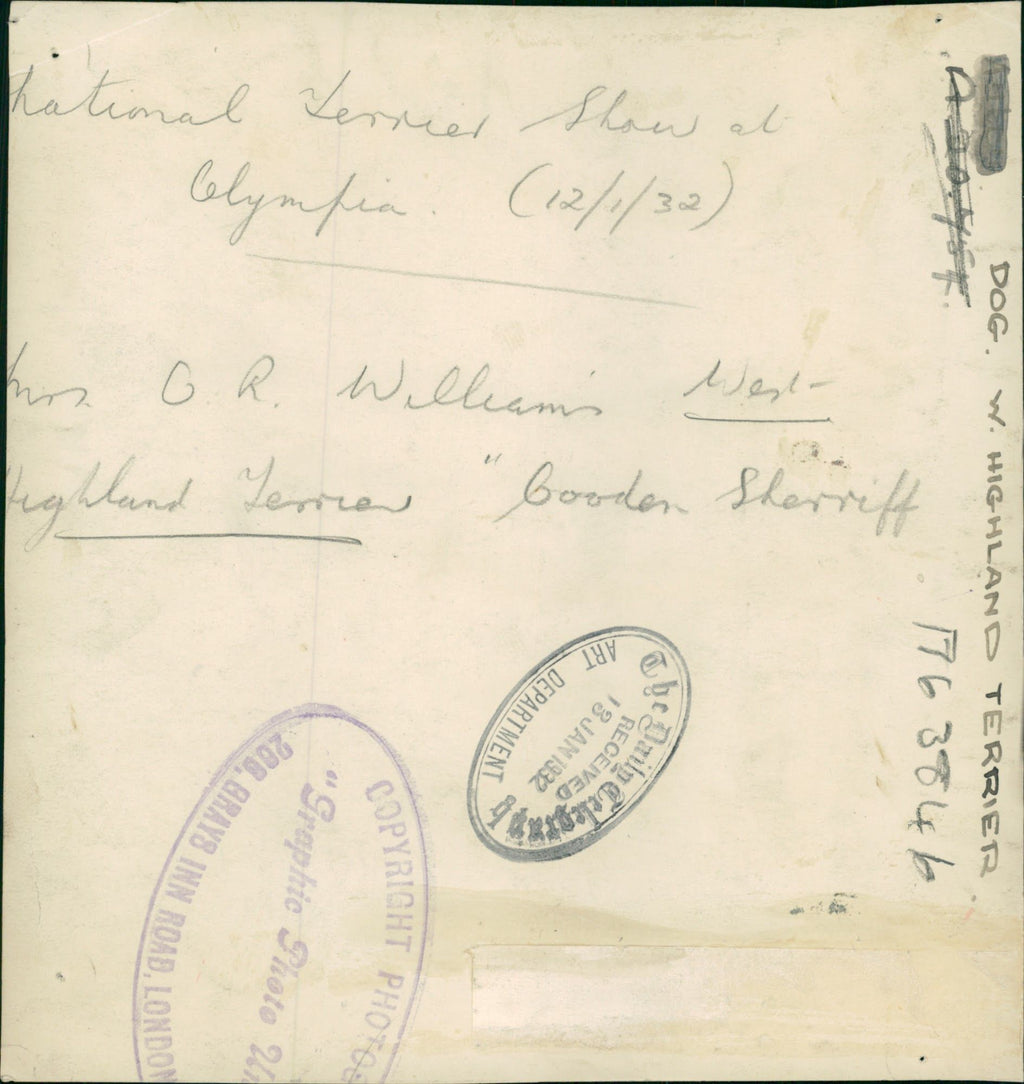 National Terrier Show at
Olympia. (12/1/32)
Mrs. O. R. William's West
Highland Terrier "Cooden Sherriff
DOG. W. HIGHLAND TERRIER
1763846
The Daily Telegraph
RECEIVED
13 JAN 1932
ART DEPARTMENT
COPYRIGHT PHOTOG
"Graphic Photo Un
268, GRAYS INN ROAD, LONDON